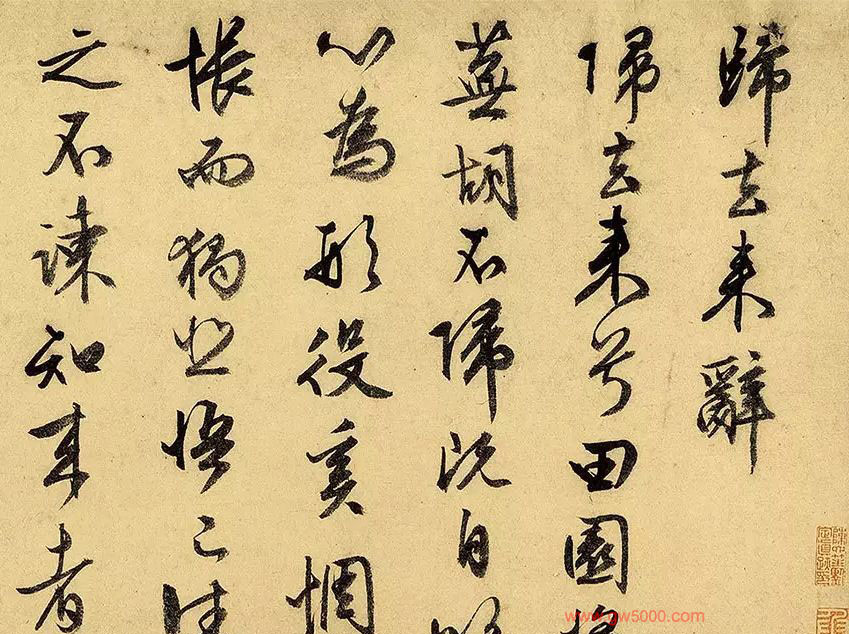 歸去来辭
歸去来兮田園
蕪胡不歸既自
心為形役奚惆
悵而獨悲悟已往
之不諫知来者
www.gw5000.com